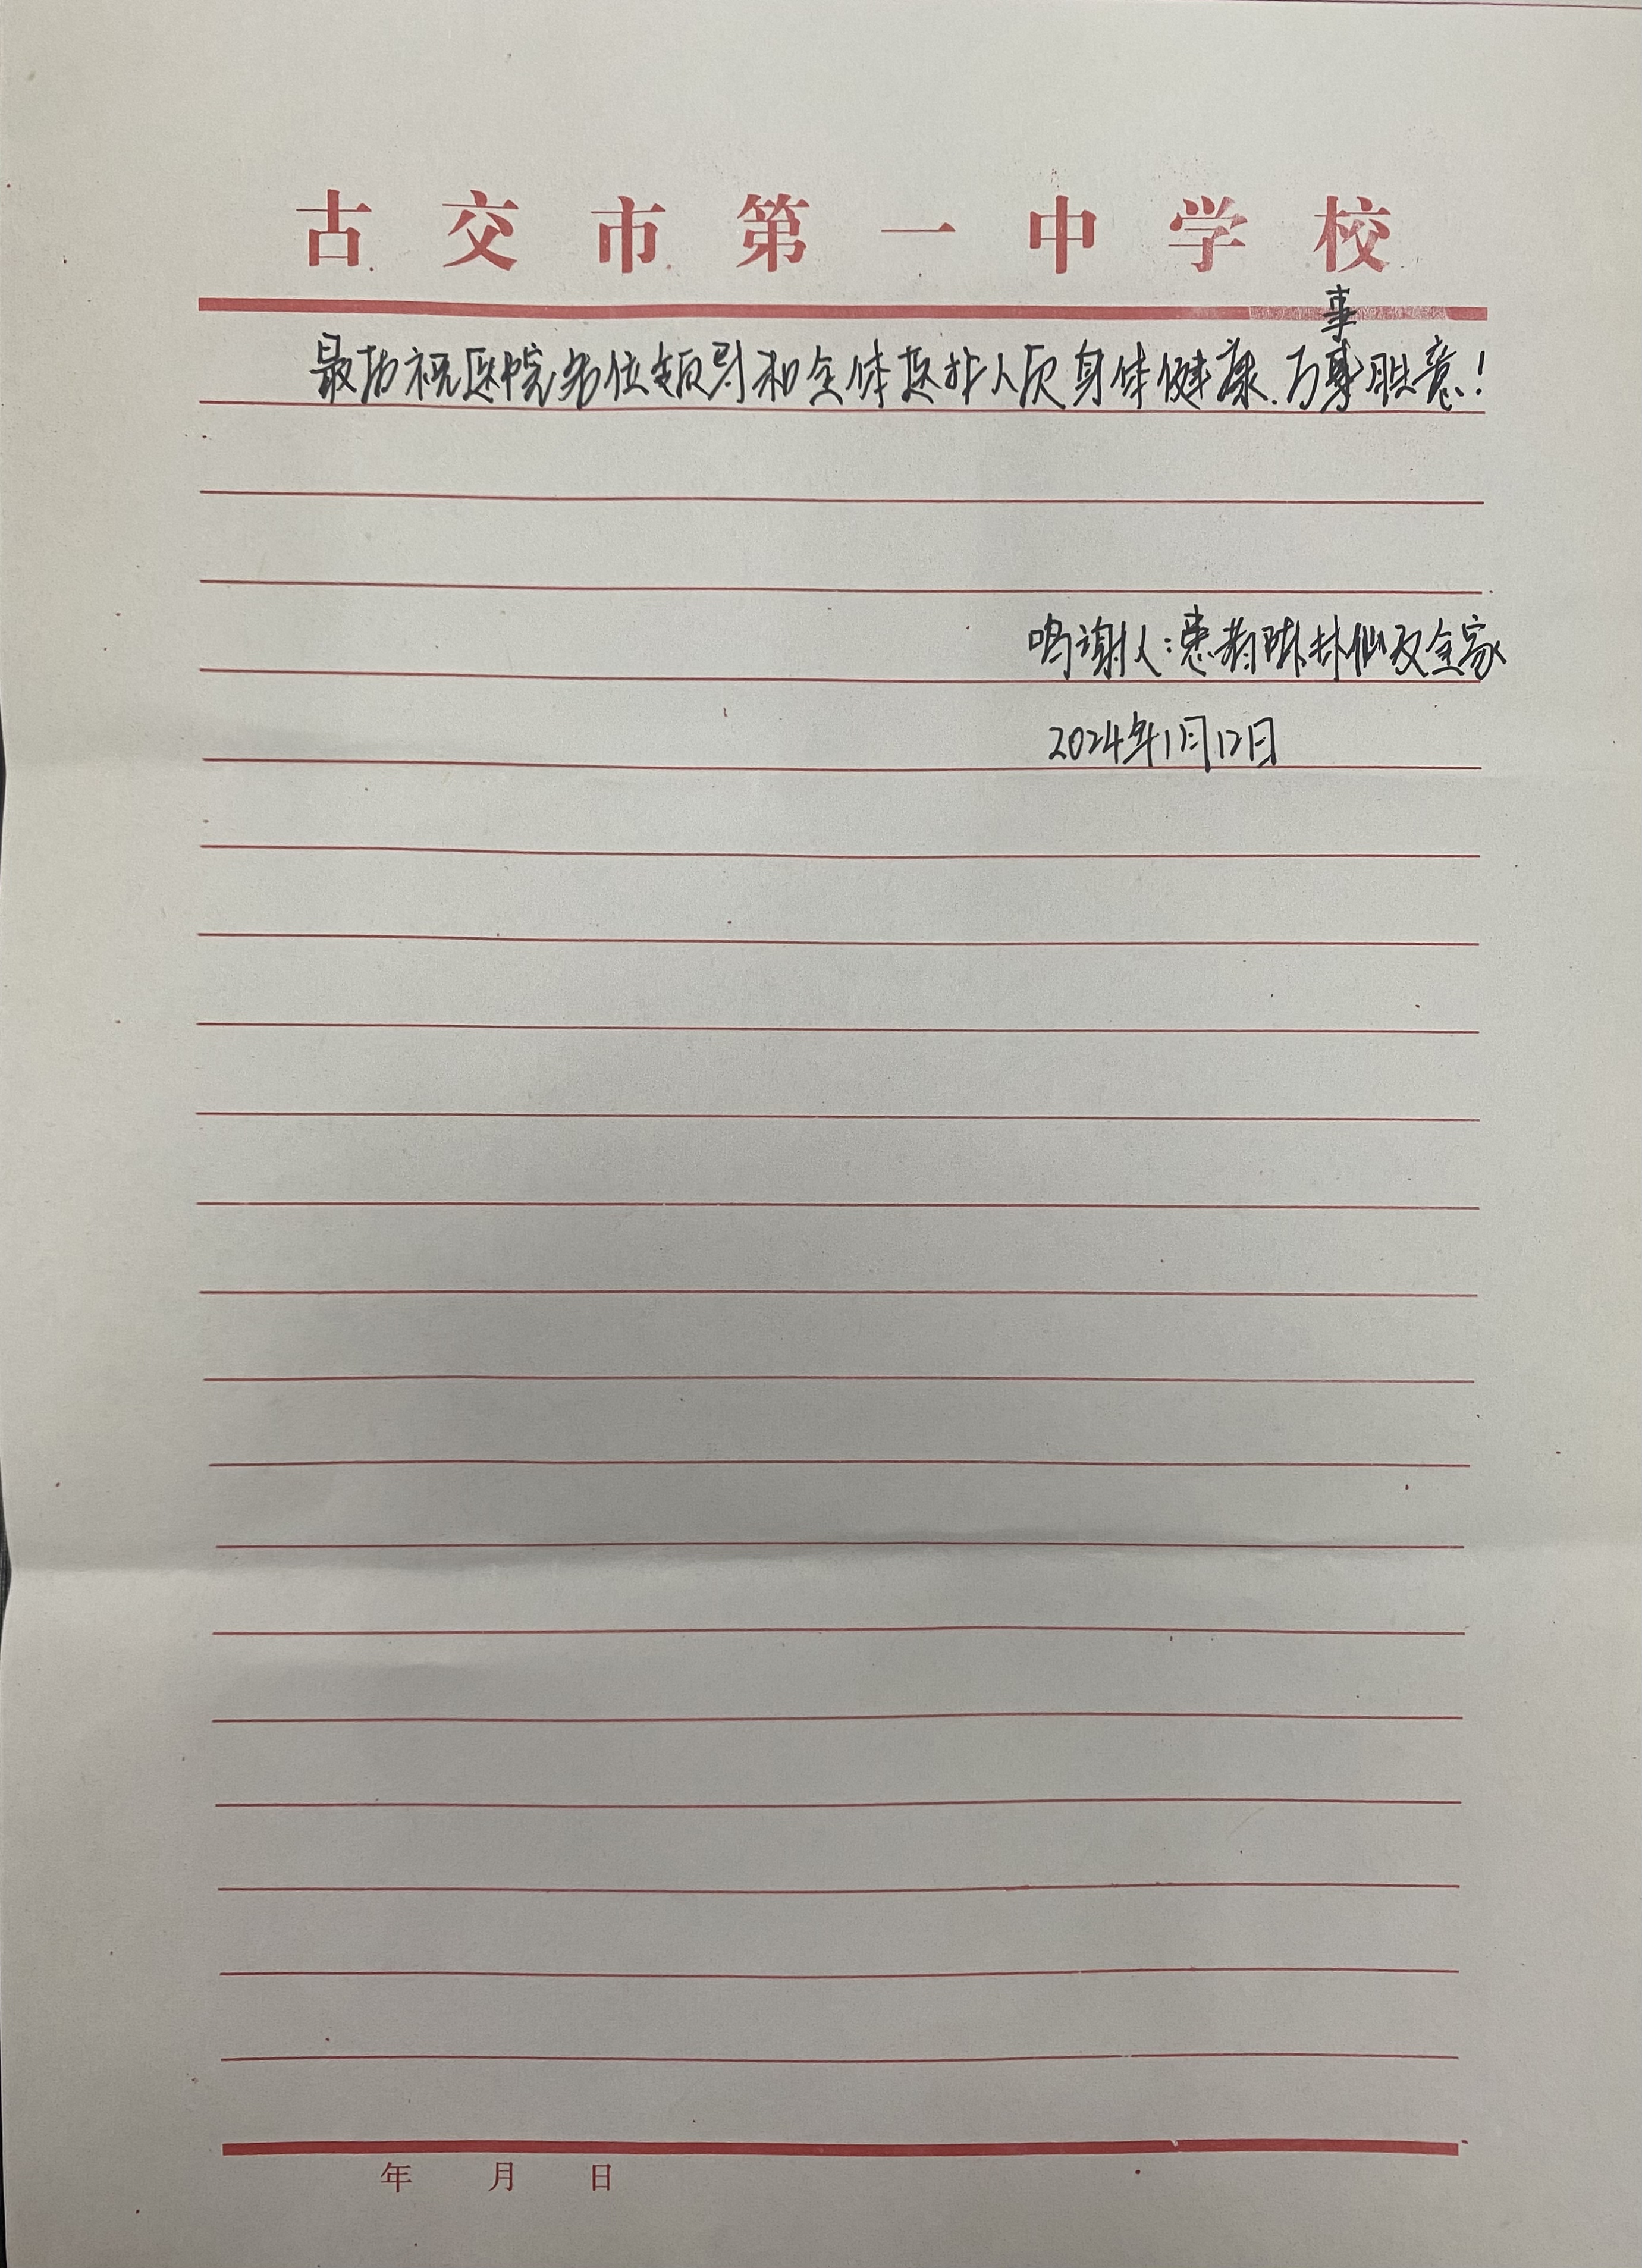 古交市第一中学校
事
最后祝医院各位领导和全体医护人员身体健康.万事胜意!
鸣谢人:患者陈林仙及全家
2024年1月12日
年 月 日